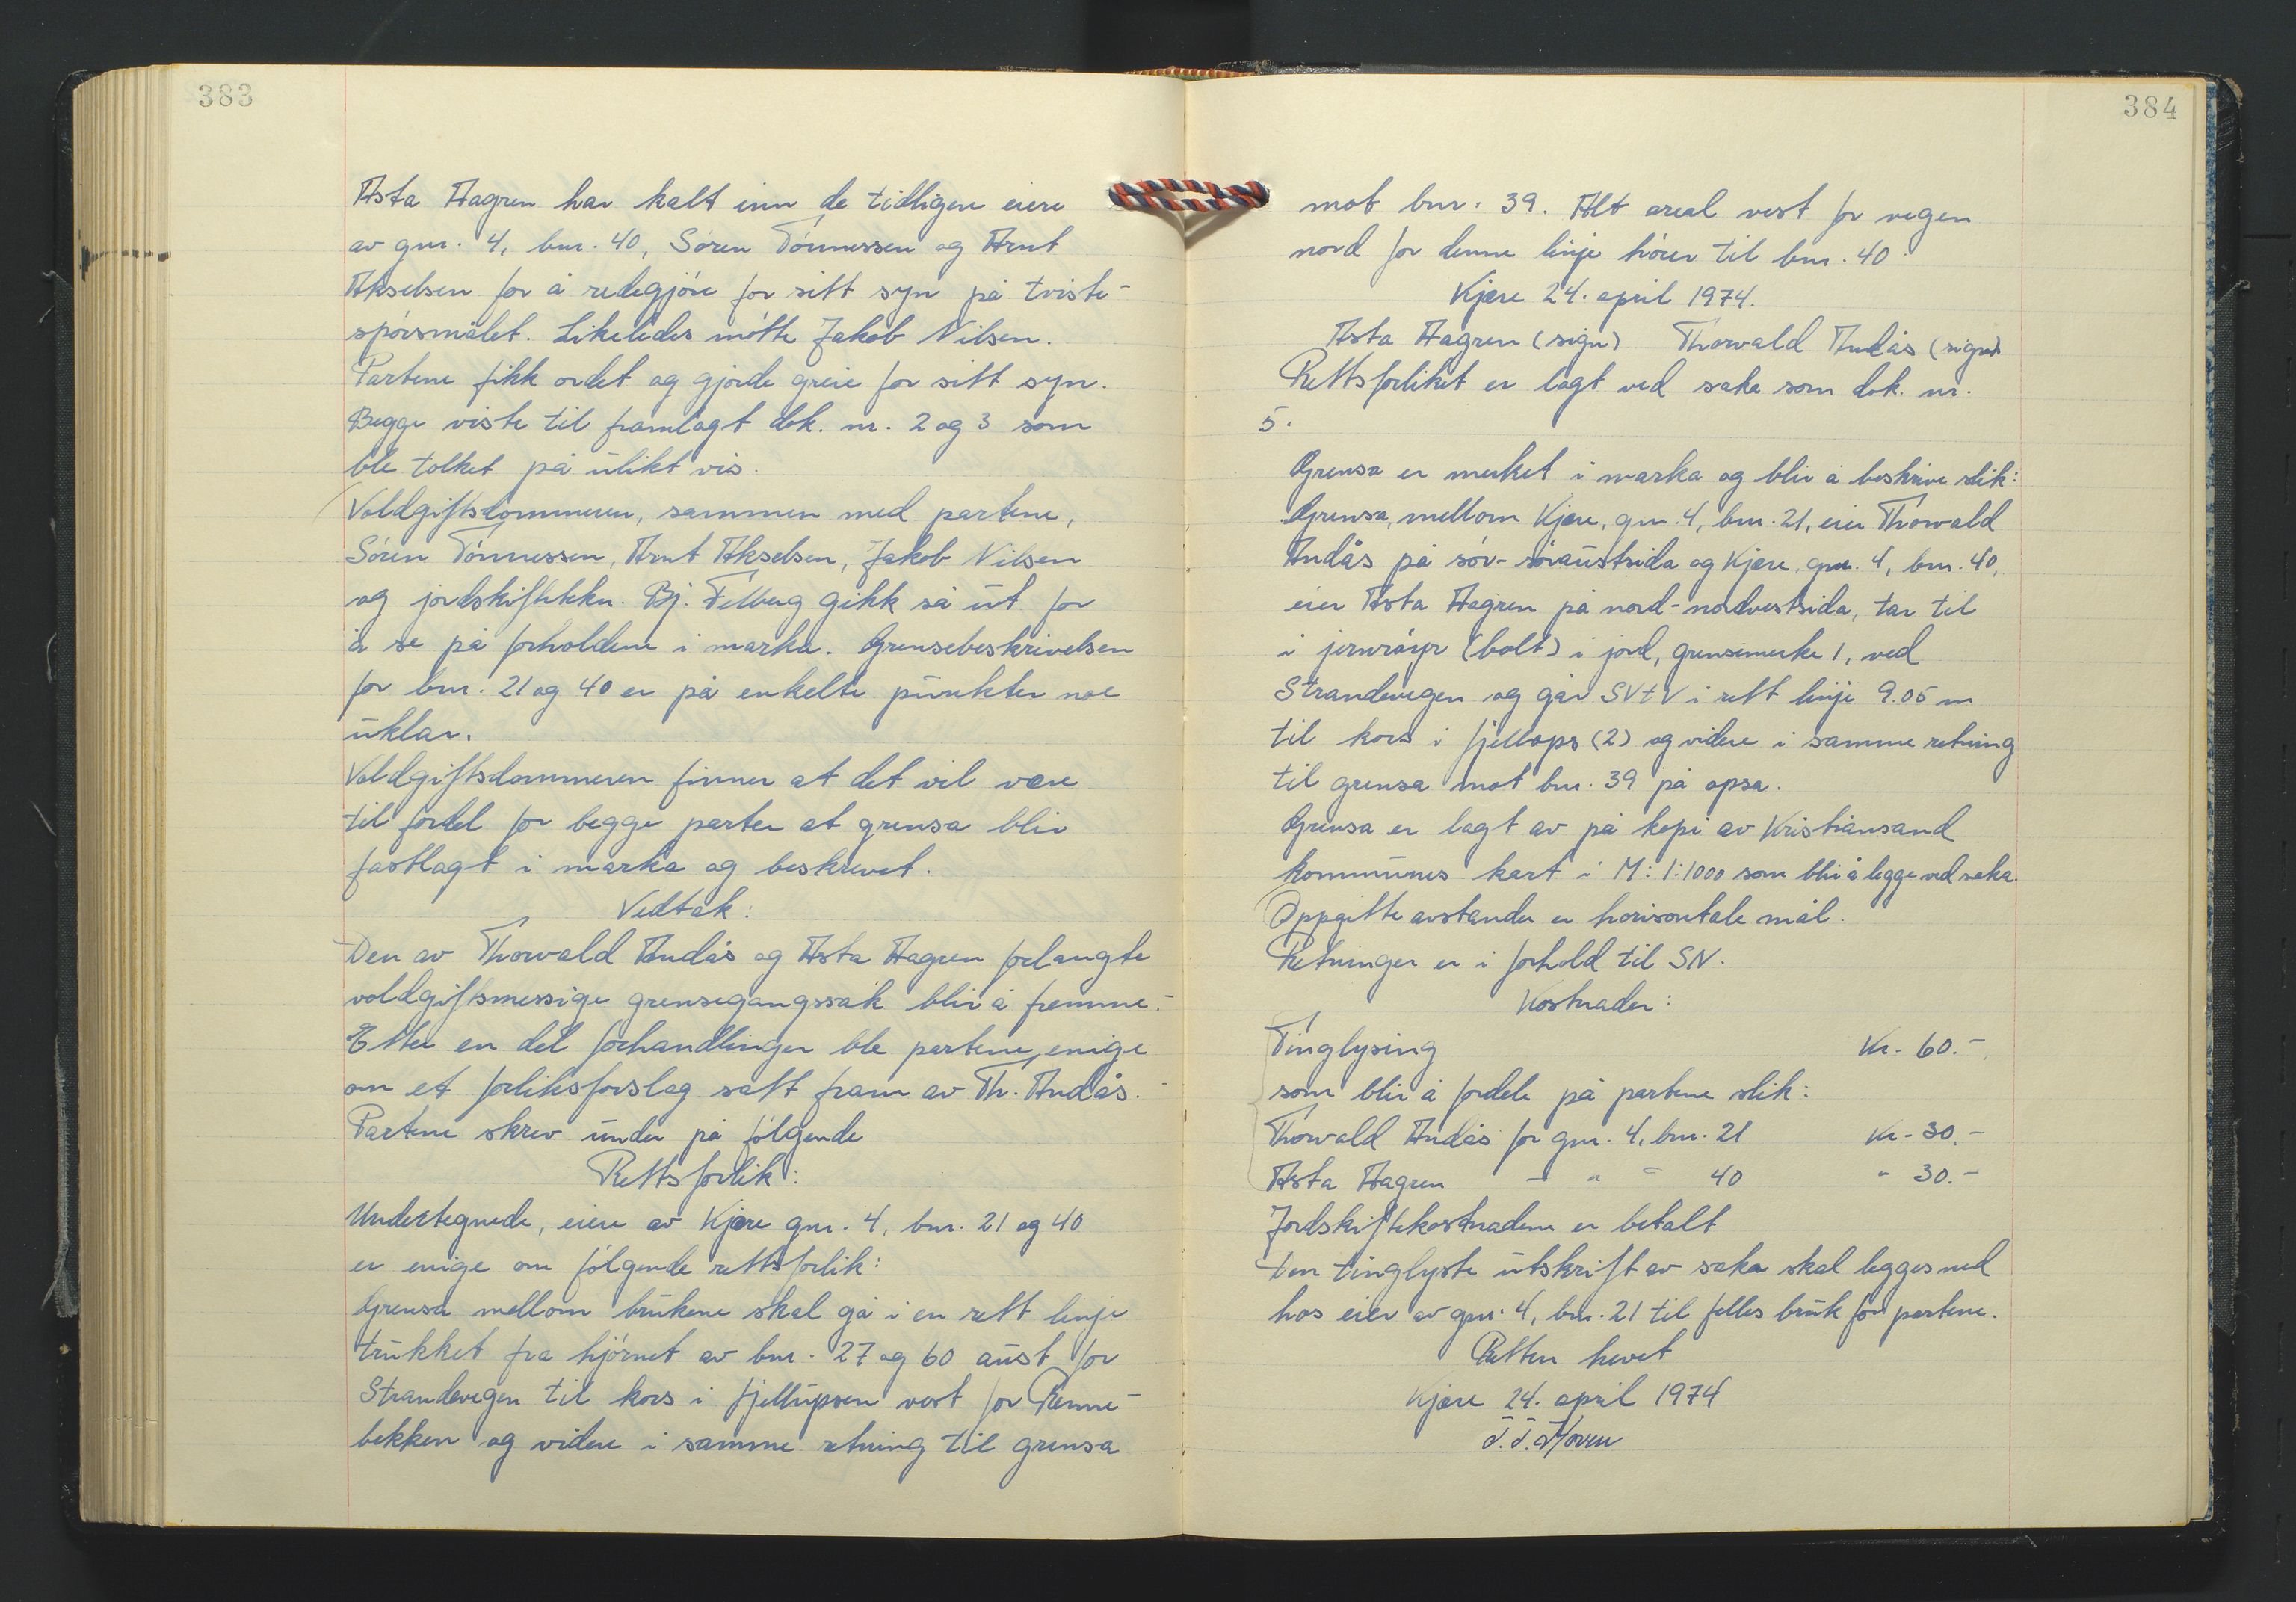 383
Asta Hagren har kalt inn de tidligere eiere
av gnr. 4, bnr. 40, Sören Tönnessen og Arnt
Akselsen for å redegjöre for sitt syn på tviste-
spörsmålet. Likeledes mötte Jakob Nilsen.
Partene fikk ordet og gjorde greie for sitt syn.
Begge viste til framlagt dok. nr. 2 og 3 som
ble tolket på ulikt vis.
Voldgiftsdommeren, sammen med partene,
Sören Tönnessen, Arnt Akselsen, Jakob Nilsen
og jordskiftekkn. Bj. gikk så ut for
å se på forholdene i marka. Grensebeskrivelsen
for bnr. 21 og 40 er på enkelte punkter noe
uklar.
Voldgiftsdommeren finner at det vil være
til fordel for begge parter at grensa blir
fastlagt i marka og beskrevet.
Vedtak:
Den av Thorvald Andås og Asta Hagren forlangte
voldgiftsmessige grensegangssak blir å fremme.
Etter en del forhandlinger ble partene enige
om et forliksforslag satt fram av Th. Andås.
Partene skrev under på fölgende
Rettsforlik:
Undertegnede, eiere av Kjære gnr. 4, bnr. 21 og 40
er enige om fölgende rettsforlik:
Grensa mellom brukene skal gå i en rett linje
trukket fra hjörnet av bnr. 27 og 60 aust for
Strandevegen til kors i fjellupsen vest for Renne-
bekken og videre i samme retning til grensa
384
mot bnr. 39. Alt areal vest for vegen
nord for denne linje hörer til bnr. 40
Kjære 24. april 1974.
Asta Hagren (sign) Thorvald Andås (sign)
Rettsforliket er lagt ved saka som dok. nr.
5.
Grensa er merket i marka og blir å beskrive slik:
Grensa, mellom Kjære, gnr. 4, bnr. 21, eier Thorvald
Andås på sör-söraustsida og Kjære, gnr. 4, bnr. 40,
eier Asta Hagren på nord-nordvestsida, tar til
i jernröyr (bolt) i jord, grensemerke 1, ved
Strandevegen og går SVtV i rett linje 9.05 m
til kors i fjellops (2) og videre i samme retning
til grensa mot bnr. 39 på opsa.
Grensa er lagt av på kopi av Kristiansand
kommunes kart i M: 1:1000 som blir å legge ved saka.
Oppgitte avstander er horisontale mål.
Retninger er i forhold til SN.
Kostnader:
Tinglysing Kr. 60.-
som blir å fordele på partene slik:
Thorvald Andås for gnr. 4, bnr. 21 Kr. 30.-
Asta Hagren - " - 40 " 30.-
Jordskiftekostnadene er betalt
Den tinglyste utskrift av saka skal legges ned
hos eier av gnr. 4, bnr. 21 til felles bruk for partene.
Retten hevet
Kjære 24. april 1974